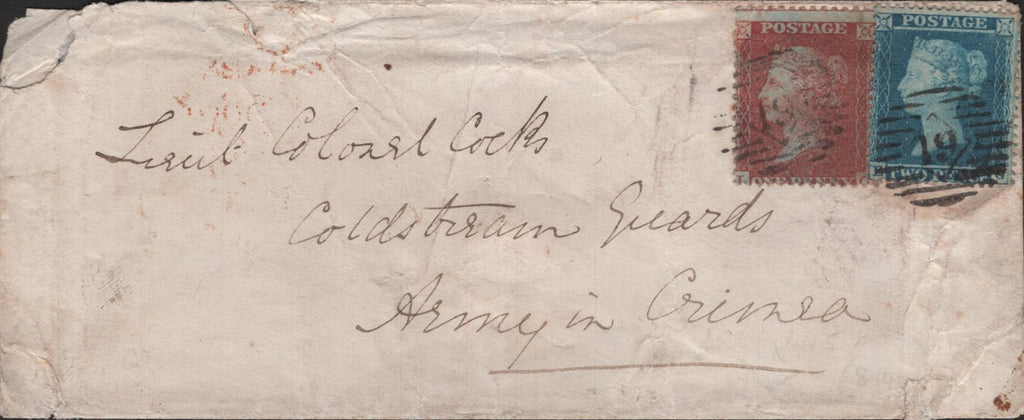 POSTAGE POSTAGE
ONE PENNY TWO PENCE
19
Lieut Colonel Cocks
Coldstream Guards
Army in Crimea